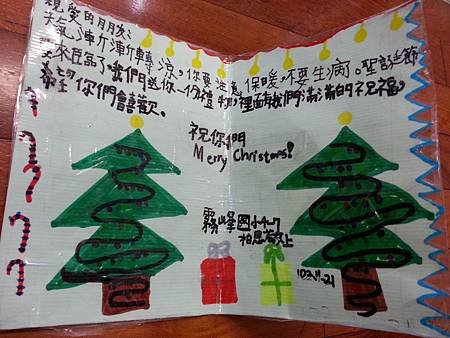 親愛的月月友:
天氣漸漸轉涼,你要注意保暖,不要生病。聖誕節
來臨了,我們送你一個禮物,裡面有我們滿滿的祝福,
希望你們會喜歡。
祝你們
Merry Christmas!
霧峰國小4-7
柏思
上
103.11.21